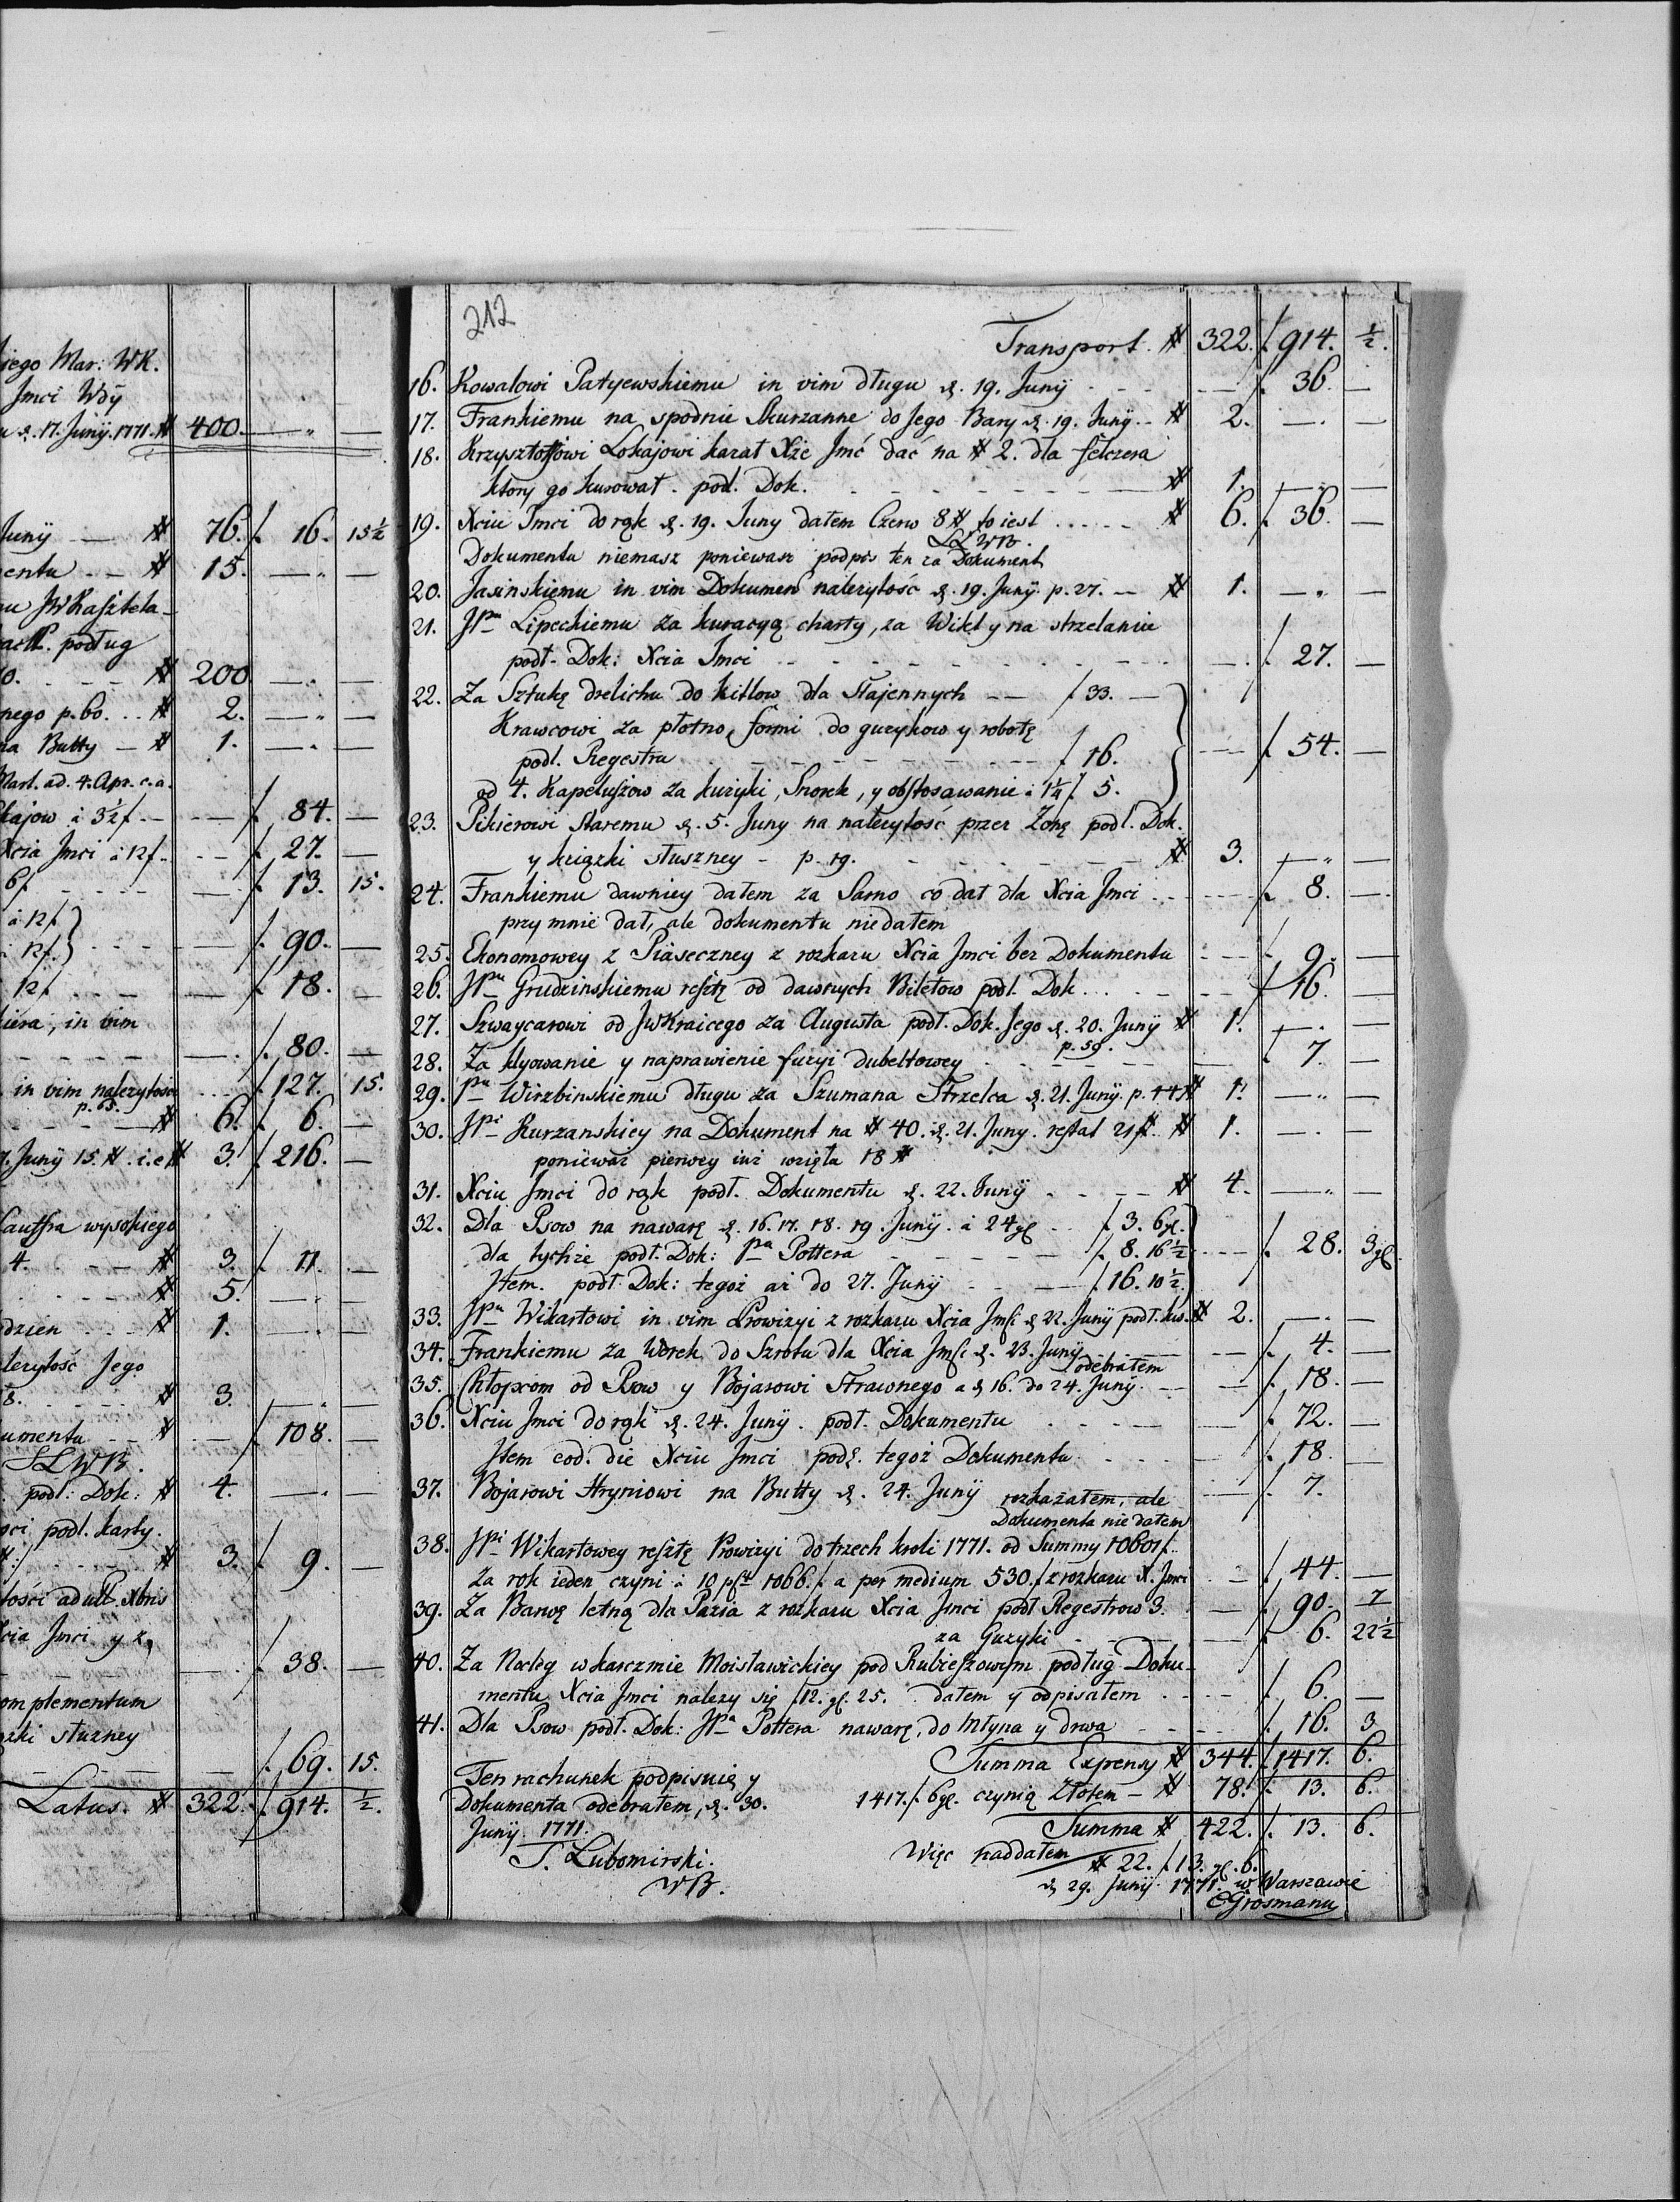 iego Mar: WK.
Jmci Wdÿ
d. 17. Junÿ. 1771. # 400. — " —
Junÿ — # 76. f. 16. 15½
entu — # 15. — " —
podług
0. — # 200 — " —
nego p. 60. .. # 2. — " —
na Butty — # 1. — " —
ad. 4. Apr. c. a.
kajow à 3½ f. — — f. 84. —
Xcia Jmci à 12 f. — f. 27. —
6 f. — — f. 13. 15.
à 12 f.
à 12 f. — f. 90. —
12 f. — f. 18. —
, in vim
— f. 80. —
in vim należytości f. 127. 15.
p. 65. # 6. f. 6. —
7. Junÿ 15 #. i.e # 3. f. 216. —
wysokiego
4. — # 3. f. 11. —
# 5. — " —
dzien .. # 1. — —
Jego
8. — # 3. — " —
umentu — # — f. 108. —
SLWB.
podł: Dok: # 4. — " —
podł. karty.
# 3. f. 9. —
tości ad ult. Xbris
Xcia Jmci y z
— f. 38. —
omplementum
szki stuzney
— f. 69. 15.
Latus. # 322. f. 914. ½.
212
Transport. # 322. f. 914. ½.
16. Kowalowi Patyewskiemu in vim długu d. 19. Junÿ — f. 36. —
17. Frankiemu na spodnie Skurzanne do Jego Barwy d. 19. Junÿ — # 2. — " —
18. Krzysztofowi Lokajowi kazał Xże Jmć dać na # 2. dla felczera
ktory go kurował. podł. Dok. — # 1. — " —
19. Xciu Jmci do rąk d. 19. Juny dałem Czerw 8 # to iest ..... # 6. f. 36. —
SLWB.
Dokumentu niemasz poniewasz podpis ten za Dokument
20. Jasinskiemu in vim Dokumen należytość d. 19. Junÿ p. 27. — # 1. — " —
21. JPu Lipeckiemu za kuracyą charty, za Wikt y na strzelanie
podł. Dok: Xcia Jmci — f. 27. —
22. Za Sztukę drelichu do kitlow dla Stajennych — f 33. —
Krawcowi za płotno, formi do guzykow y robotę
podł. Regestru — f. 16. — f. 54. —
od 4. Kapeluszow za kuzyki, Snorek, y obstosawanie à 1¼ f. 5.
23. Pikierowi Staremu d. 5. Juny na należytość przez Zonę podł. Dok.
y książki stuszney — p. 19. — # 3. — " —
24. Frankiemu dawniey dałem za Sarno co dał dla Xcia Jmci — f. 8. —
przy mnie dał, ale dokumentu niedałem
25. Ekonomowey z Piaseczney z rozkazu Xcia Jmci bez Dokumentu — f. 9. —
26. JPu Grudzinskiemu resztę od dawnych Biletow podł. Dok... — f. 16. —
27. Szwaycarowi od JWKraicego za Augusta podł. Dok. Jego d. 20. Junÿ # 1. — " —
p. 59.
28. Za klyowanie y naprawienie fuzyi dubeltowey — f. 7. —
29. Pu Wirzbinskiemu długu za Szumana Strzelca d. 21. Junÿ. p. 44 # 1. — " —
30. JPi Kurzanskiey na Dokument na # 40. d. 21. Juny. restat 21 # # 1. — —
poniewaz pierwey iuż wzięła 18 #
31. Xciu Jmci do rąk podł. Dokumentu d. 22. Junÿ — # 4. — " —
32. Dla Psow na nawarę d. 16. 17. 18. 19. Junÿ. à 24 gl — f. 3. 6 gl.
dla tychże podł. Dok: Pa Pottera — f. 8. 16½ — f. 28. 3 gl.
Item. podł. Dok: tegoż aż do 27. Junÿ — f. 16. 10½
33. JPu Wikartowi in vim Prowizyi z rozkazu Xcia Jmci d 22. Junÿ podł. kw. # 2. — " —
34. Frankiemu za Worek do Szrotu dla Xcia Jmci d. 23. Junÿ — f. 4. —
odebrałem
35. Chłopcom od Psow y Bojarowi Strawnego a d 16. do 24. Junÿ — f. 18. —
36. Xciu Jmci do rąk d. 24. Junÿ. podł. Dokumentu — f. 72. —
Item eod. die Xciu Jmci podł. tegoż Dokumentu — f. 18. —
37. Bojarowi Hryniowi na Butty d. 24. Junÿ — f. 7.
rozkazałem, ale
Dokumentu nie dałem
38. JPi Wikartowey resztę Prowizyi do trzech kroli 1771. od Summy 10601 f.
za rok ieden czyni à 10 pCt 1066. f. a per medium 530. f. z rozkazu X. Jmci — f. 44. —
39. Za Barwę letnę dla Pazia z rozkazu Xcia Jmci podł Regestrow 3. — f. 90. 7
za Guzyki — f. 6. 22½
40. Za Nocleg w karczmie Moisławickiey pod Rubieszowym podług Doku-
mentu Xcia Jmci nalezy się f 12. gl. 25. dałem y odpisałem — f. 6. —
41. Dla Psow podł. Dok: JPa Pottera nawarę, do Młyna y drwa — f. 16. 3
Summa Expensy # 344. f. 1417. 6.
1417. f. 6 gl. czynią Złotem — # 78. f. 13. 6.
Summa # 422. f. 13. 6.
Ten rachunek podpisuię y
Dokumenta odebrałem, d. 30.
Junÿ 1771.
S. Lubomirski.
WB.
Więc naddałem # 22. f. 13. gl. 6.
d. 29. Junÿ 1771. w Warszawie
CGrosmanu